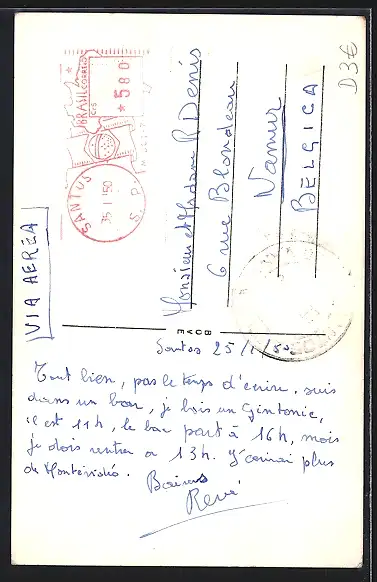 D3€
BRASIL CORREIO
580
SANTOS
S. P.
VIA AEREA
Monsieur et Madame R Denis
6 rue Blondeau
Namur
BELGICA
Santos 25/1/50
Tout bien, pas le temps d'écrire, suis
dans un bar, je bois un Gintonic,
il est 11h, le bac part à 16h, mais
je dois rentrer à 13h. J'écrirai plus
de Montévidéo.
Baisers
René